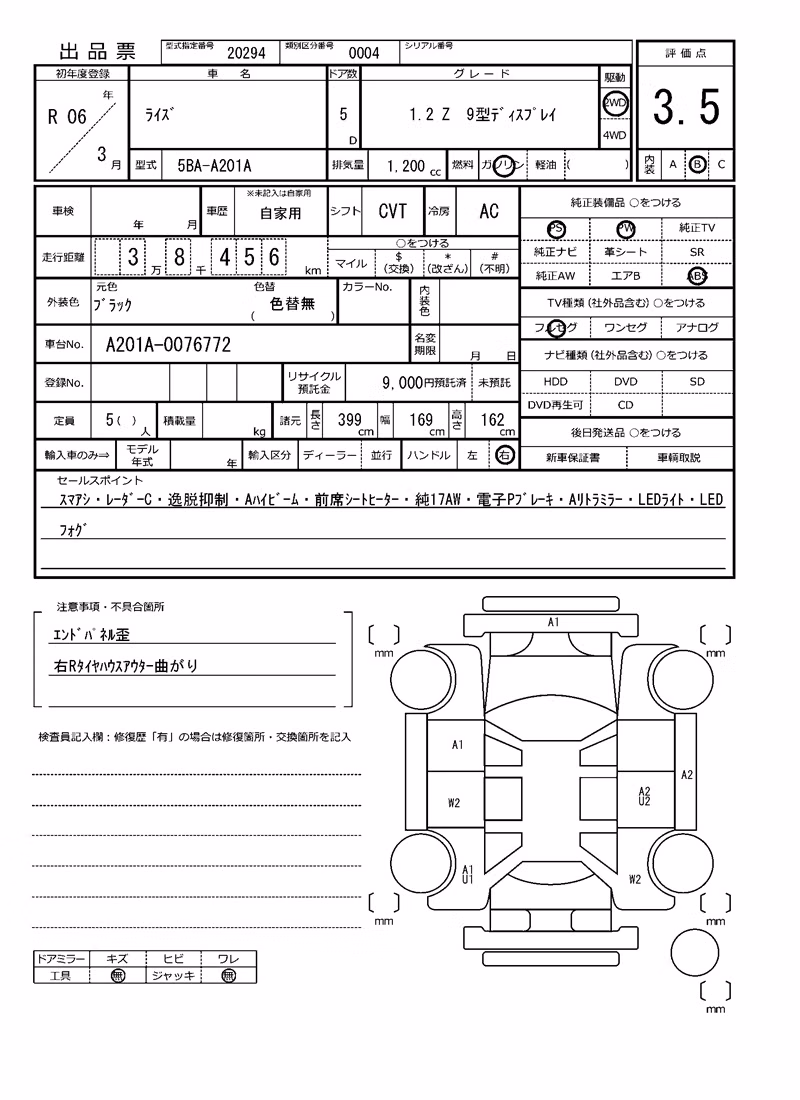 出品票 型式指定番号 20294 類別区分番号 0004 シリアル番号
評価点
3.5
内装 A B C
初年度登録 車名 ドア数 グレード 駆動
R 06 年 3 月 ライズ 5 D 1.2 Z 9型ディスプレイ 2WD 4WD
型式 5BA-A201A 排気量 1,200 cc 燃料 ガソリン 軽油 ( )
車検 年 月 車歴 ※未記入は自家用 自家用 シフト CVT 冷房 AC
走行距離 3 万 8 千 4 5 6 km ○をつける
マイル $ (交換) * (改ざん) # (不明)
外装色 元色 ブラック 色替 色替無 ( ) カラーNo. 内装色
車台No. A201A-0076772 名変期限 月 日
登録No. リサイクル預託金 9,000円預託済 未預託
定員 5( ) 人 積載量 kg 諸元 長さ 399 cm 幅 169 cm 高さ 162 cm
輸入車のみ⇒ モデル年式 年 輸入区分 ディーラー 並行 ハンドル 左 右
純正装備品 ○をつける
PS PW 純正TV
純正ナビ 革シート SR
純正AW エアB ABS
TV種類(社外品含む)○をつける
フルセグ ワンセグ アナログ
ナビ種類(社外品含む)○をつける
HDD DVD SD
DVD再生可 CD
後日発送品 ○をつける
新車保証書 車輌取説
セールスポイント
スマアシ・レーダーC・逸脱抑制・Aハイビーム・前席シートヒーター・純17AW・電子Pブレーキ・Aリトラミラー・LEDライト・LED
フォグ
注意事項・不具合箇所
エンドパネル歪
右Rタイヤハウスアウター曲がり
検査員記入欄：修復歴「有」の場合は修復箇所・交換箇所を記入
ドアミラー キズ ヒビ ワレ
工具 無 ジャッキ 無
A1
mm mm
A1
A2
W2
A2
U2
A1
U1
W2
mm mm
mm